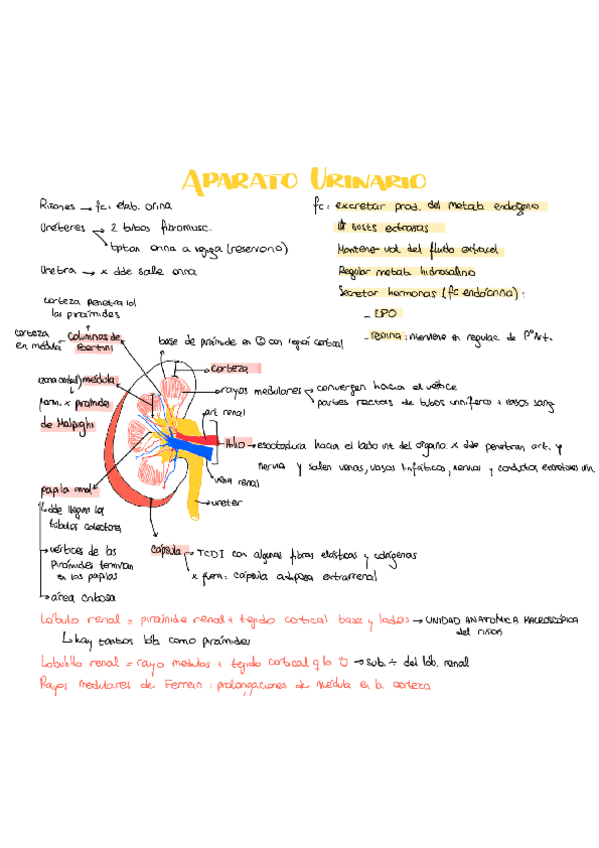 APARATO URINARIO
Riñones → fc: elab. orina
Ureteres → 2 tubos fibromusc.
↳ aptan orina a vejiga (reservorio)
Uretra → x dde sale orina
fc: excretar prod. del metab endógeno
" susts extrañas
Mantener vol del fluido extracel
Regular metab hidrosalino
Secretar hormonas (fc endocrina):
- EPO
- renina: interviene en regulac. de P° Art.
corteza penetra
las pirámides
corteza en médula
Columnas de Bertini
base de pirámide en con región cortical
(zona central) médula
form. x pirámides
de Malpighi
corteza
rayos medulares → convergen hacia el vértice
→ partes rectas de tubos urinífero + vasos sang
art. renal
Hilio → escotadura hacia el lado int del órgano. x dde penetran art. y
nervio y salen venas, vasos linfáticos, nervios y conductos excretores
vena renal
ureter
papila renal
↳ dde llegan los
túbulos colectores
→ vértices de las
Pirámides terminan
en las papilas
→ área cribosa
Cápsula → TCDI con algunas fibras elásticas y colágenas
x fuera: cápsula adiposa extrarrenal
Lóbulo renal = pirámide renal + tejido cortical base y lados → UNIDAD ANATÓMICA MACROSCÓPICA
del riñón
↳ hay tantos lób como pirámides
Lobulillo renal = rayo medular + tejido cortical q lo → sub. ÷ del lob. renal
Rayos medulares de Ferrein: prolongaciones de médula en la corteza